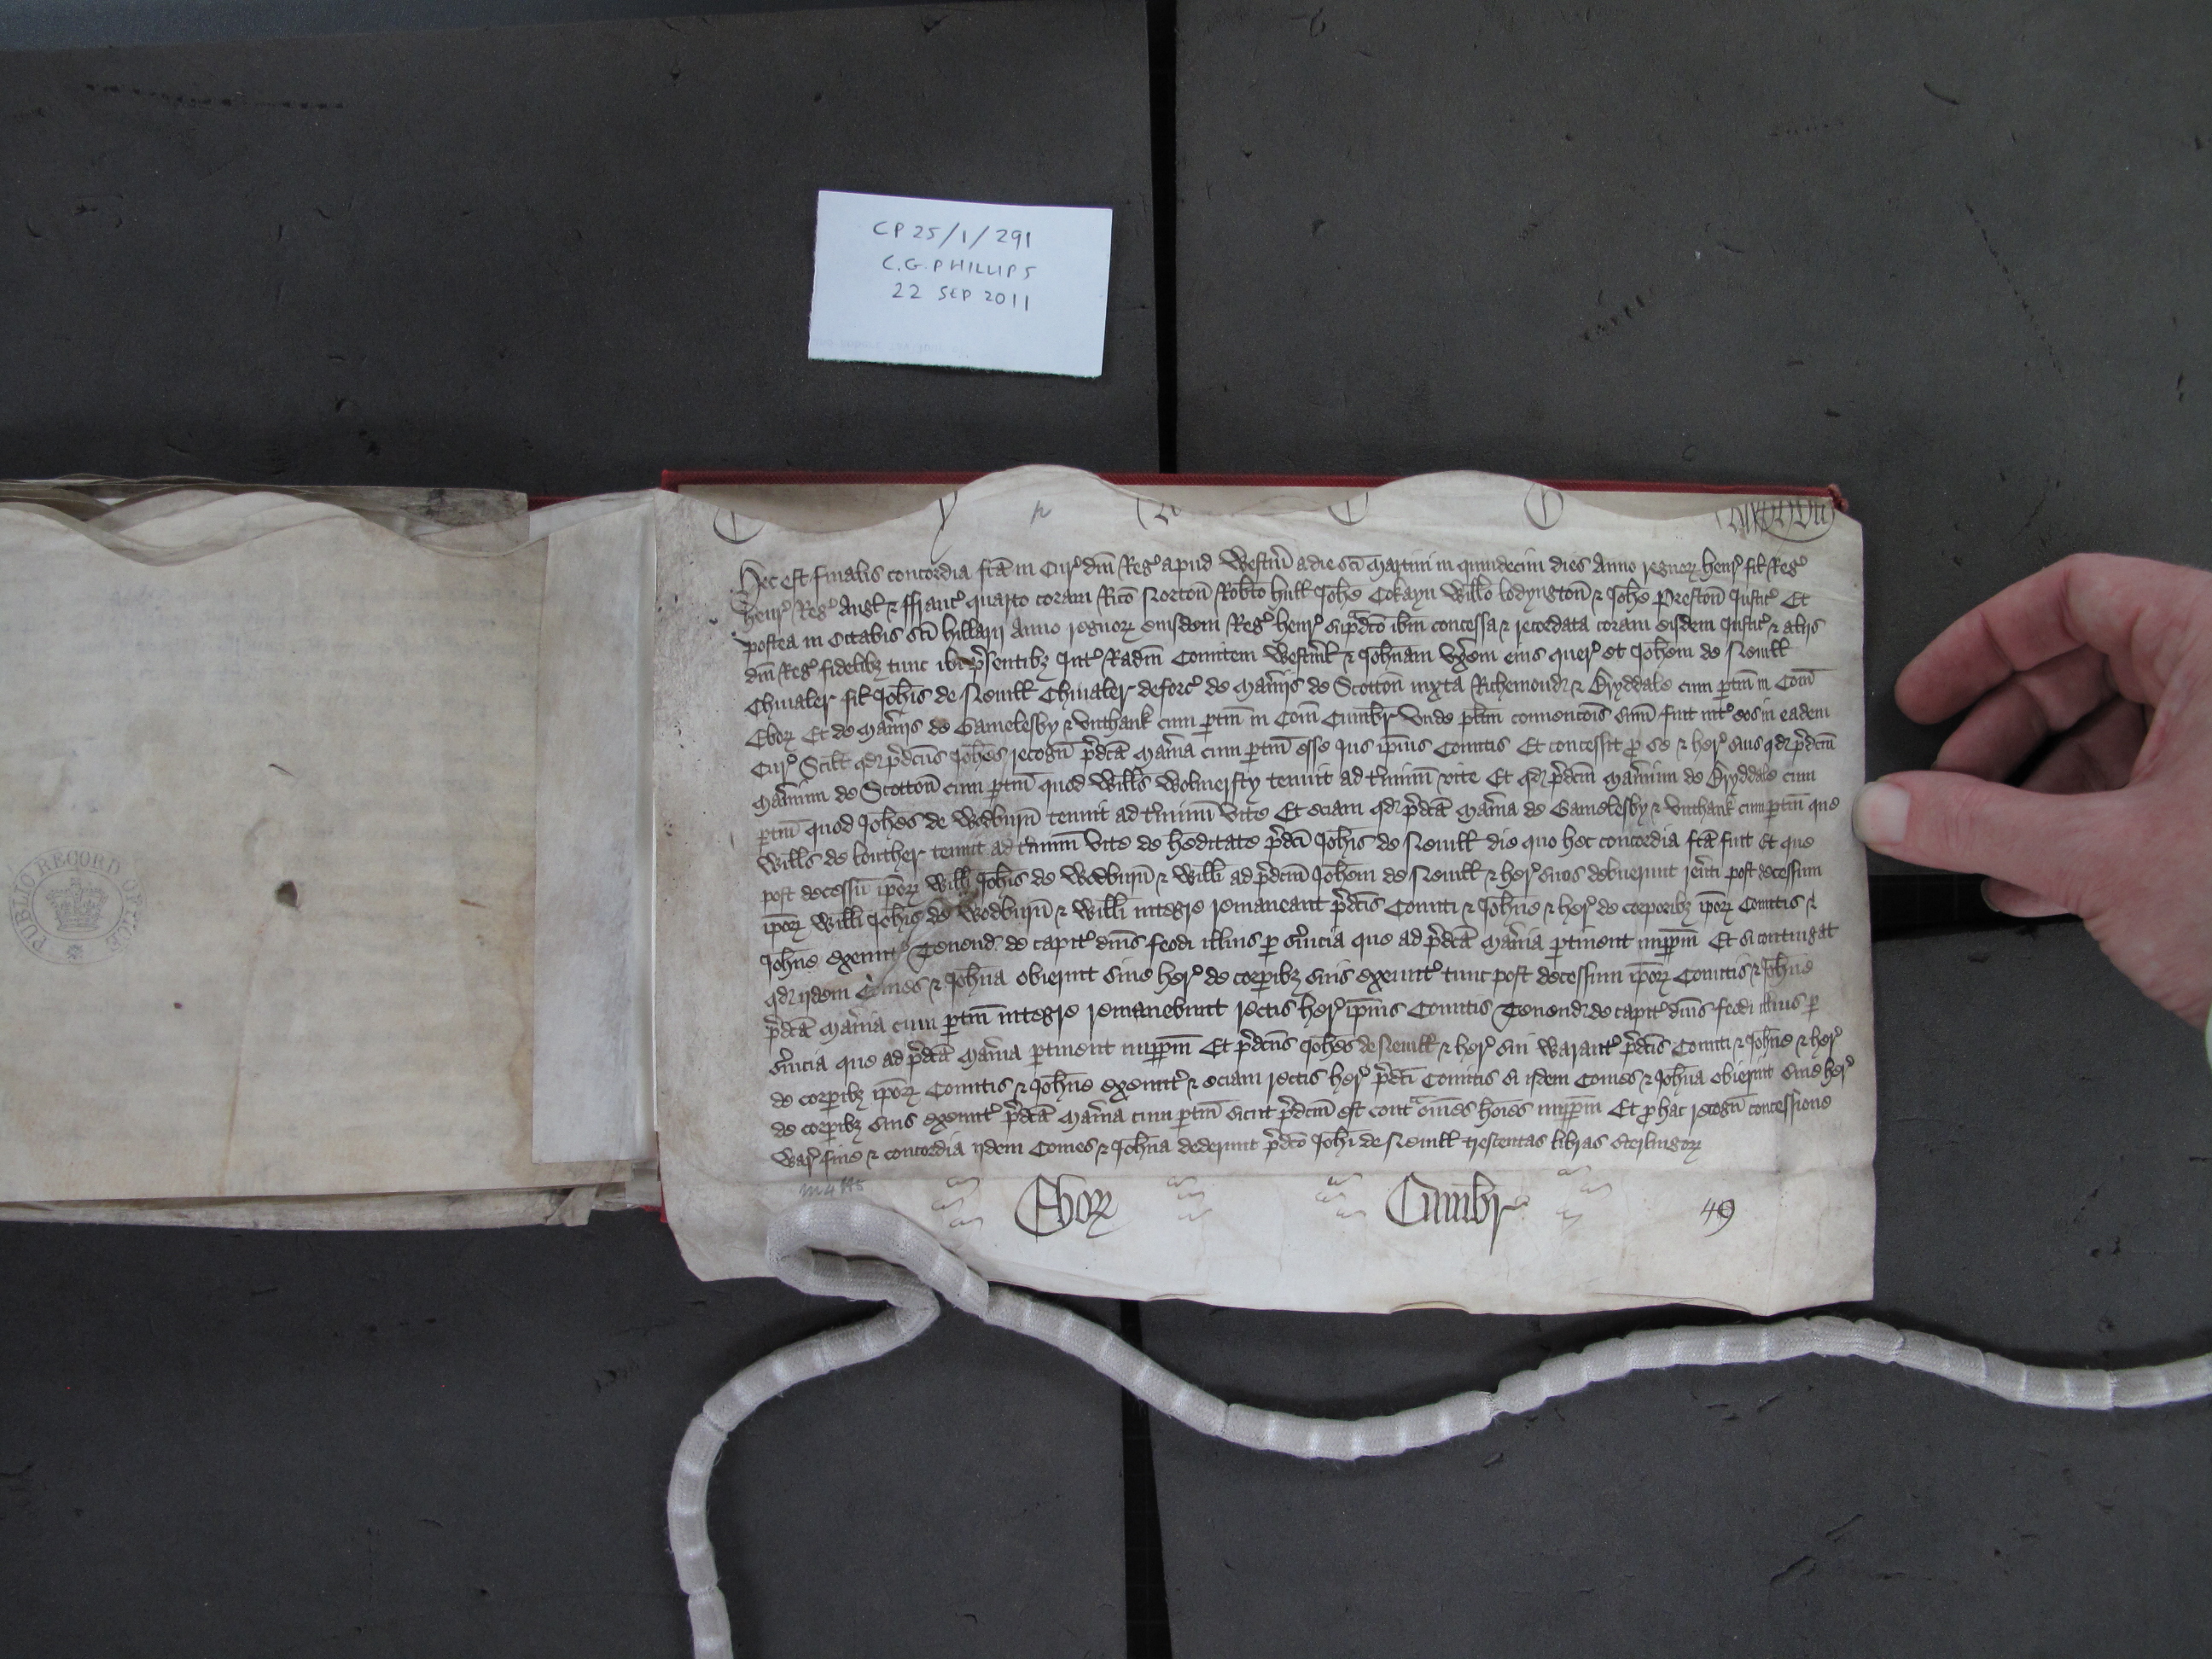 CP 25/1/291
C.G. PHILLIPS
22 SEP 2011
PUBLIC RECORD OFFICE
Hec est finalis concordia fcā in Cur' dnī Reg' apud Westm̄ a die scī Martini in quindecim dies Anno regnoꝝ Henr' fil Reg'
Henr' Reg' Angl' ⁊ Ffranc' quarto coram Ricō Norton̄ Robto Hull Johe Cokayn Willo Lodyngton̄ ⁊ Johe Preston̄ Justic' Et
postea in Octabis scī Hillarij Anno regnoꝝ eiusdem Reg' Henr' sup̄dcō ibm concessa ⁊ recordata coram eisdem Justic' ⁊ alijs
dnī Reg' fidelibꝫ tunc ibi p̄sentibꝫ Int' Radm̄ Comitem Westml' ⁊ Johnam Vxem eius quer' et Johem de Neuill
Chiualer fil Johis de Neuill Chiualer deforc' de Man̄ijs de Scotton̄ iuxta Richemond ⁊ Dryddale cum ptin̄ in Com̄
Eboꝝ Et de Man̄ijs de Gamelesby ⁊ Vnthank cum ptin̄ in Com̄ Cumbr' Vnde plitm conuencōis sum̄ fuit int' eos in eadem
Cur' Scilt qd p̄dcūs Johes recogn̄ p̄dcā Man̄ia cum ptin̄ esse Jus ip̄ius Comitis Et concessit p se ⁊ her' suis qd p̄dcm̄
Man̄ium de Scotton̄ cum ptin̄ quod Wills Woluersty tenuit ad t'minū vite Et qd p̄dcm̄ Man̄ium de Dryddale cum
ptin̄ quod Johes de Wodburn̄ tenuit ad t'minū vite Et eciam qd p̄dcā Man̄ia de Gamelesby ⁊ Vnthank cum ptin̄ que
Wills de Louther tenuit ad t'minū vite de hēditate p̄dcī Johis de Neuill die quo hec concordia fcā fuit Et que
post decessū ip̄oꝝ Willi Johis de Wodburn̄ ⁊ Willi ad p̄dcm̄ Johem de Neuill ⁊ her' suos debuerunt reu'ti post decessum
ip̄oꝝ Willi Johis de Wodburn̄ ⁊ Willi integre remaneant p̄dcīs Comiti ⁊ Johne ⁊ her' de corporibꝫ ip̄oꝝ Comitis ⁊
Johne exeunt' Tenend de capit' dnīs feodi illius p s'uicia que ad p̄dcā Man̄ia ptinent imppm̄ Et si contingat
qd ijdem Comes ⁊ Johna obierint sine her' de corpibꝫ suis exeunt' tunc post decessum ip̄oꝝ Comitis ⁊ Johne
p̄dcā Man̄ia cum ptin̄ integre remanebunt rectis her' ip̄ius Comitis Tenend de capit' dnīs feodi illius p
s'uicia que ad p̄dcā Man̄ia ptinent imppm̄ Et p̄dcūs Johes de Neuill ⁊ her' sui Warant' p̄dcīs Comiti ⁊ Johne ⁊ her'
de corpibꝫ ip̄oꝝ Comitis ⁊ Johne exeunt' ⁊ eciam rectis her' p̄dcī Comitis si ijdem Comes ⁊ Johna obierint sine her'
de corpibꝫ suis exeunt' p̄dcā Man̄ia cum ptin̄ sicut p̄dcm̄ est contᵃ om̄es hoies imppm̄ Et p hac recogn̄ concessione
War' fine ⁊ concordia ijdem Comes ⁊ Johna dederunt p̄dcō Johi de Neuill trescentas libras sterlingoꝝ
Eboꝝ Cumbr' 49